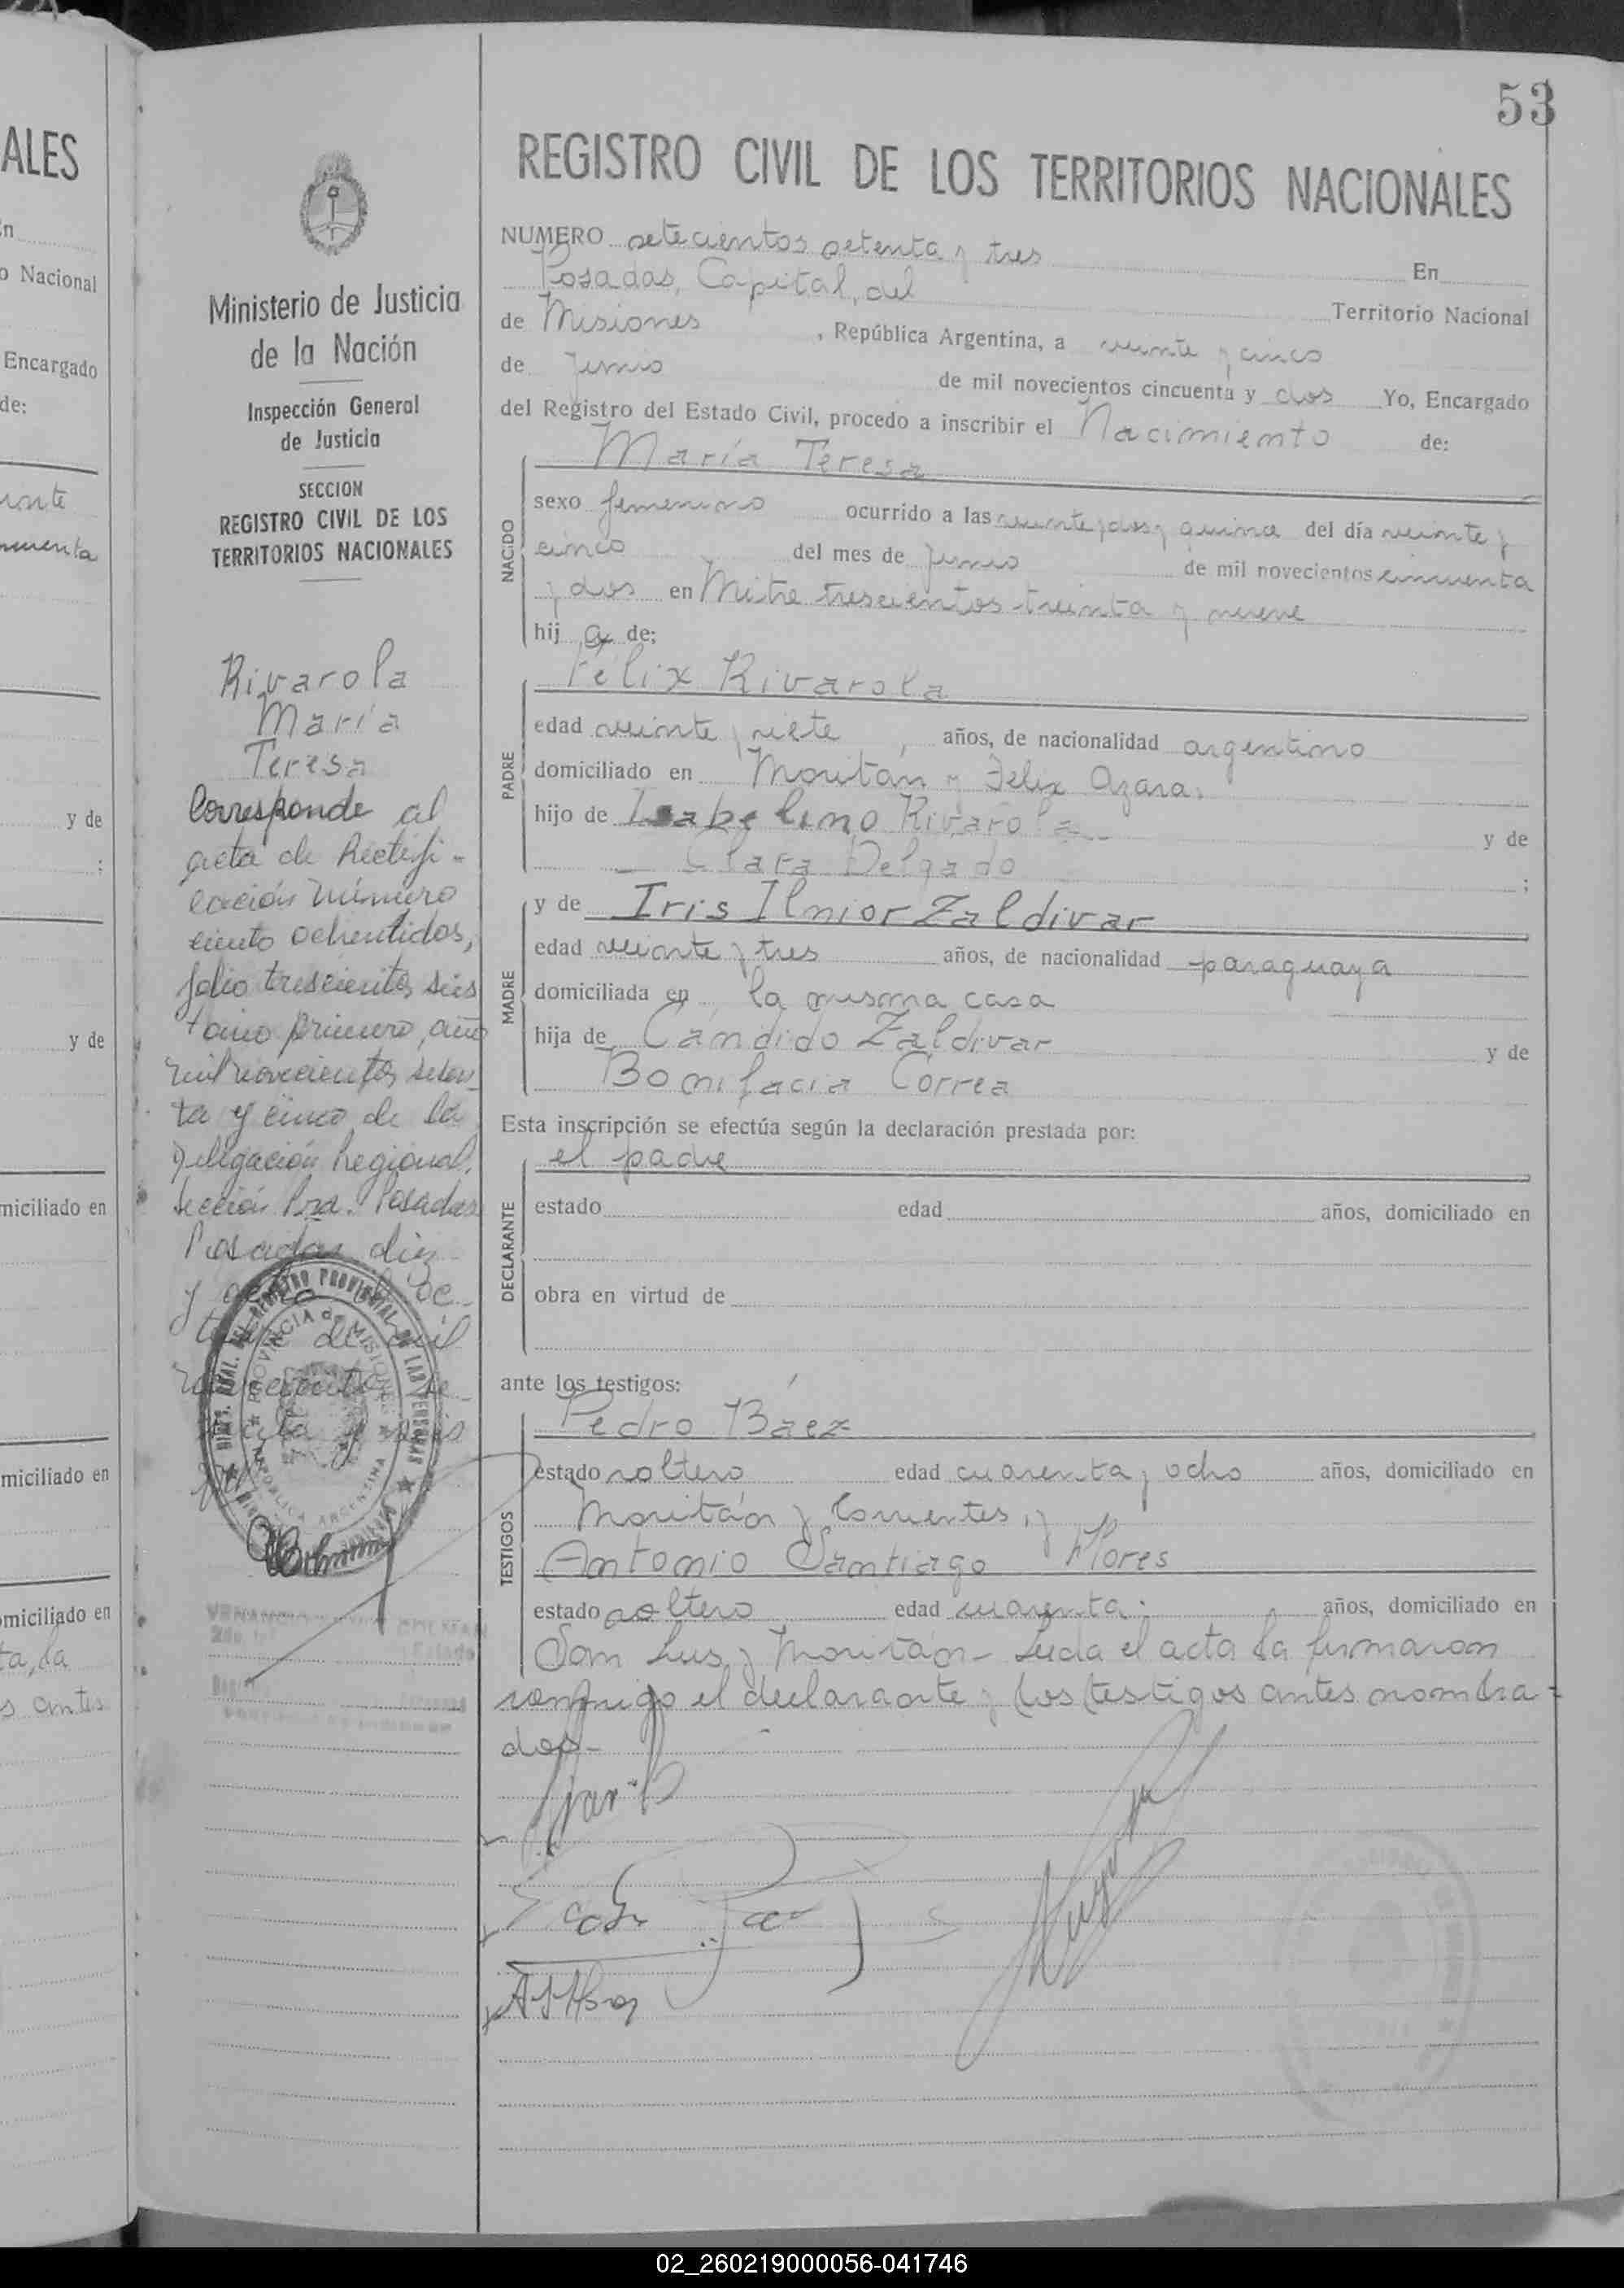 53
ALES
REGISTRO CIVIL DE LOS TERRITORIOS NACIONALES
NUMERO setecientos setenta y tres En
Posadas, Capital, del Territorio Nacional
de Misiones, República Argentina, a veinte y cinco
de Junio de mil novecientos cincuenta y dos Yo, Encargado
del Registro del Estado Civil, procedo a inscribir el Nacimiento de:
María Teresa
NACIDO
sexo femenino ocurrido a las veinte y dos y quince del día veinte y
cinco del mes de Junio de mil novecientos cincuenta
y dos en Mitre trescientos treinta y nueve
hij a de:
Félix Rivarola
PADRE
edad veinte y siete, años, de nacionalidad argentino
domiciliado en Moritán y Felix Azara.
hijo de Isabelino Rivarola y de
Clara Delgado ;
y de Iris Ilnior Zaldivar
MADRE
edad veinte y tres años, de nacionalidad paraguaya
domiciliada en la misma casa
hija de Cándido Zaldivar y de
Bonifacia Correa
Esta inscripción se efectúa según la declaración prestada por:
el padre
DECLARANTE
estado edad años, domiciliado en
obra en virtud de
ante los testigos:
Pedro Báez
TESTIGOS
estado soltero edad cuarenta y ocho años, domiciliado en
Moritán y Corrientes, y
Antonio Santiago Flores
estado soltero edad cuarenta. años, domiciliado en
San Luis y Moritán - Leida el acta la firmaron
conmigo el declarante y los testigos antes nombra-
dos-
Ministerio de Justicia
de la Nación
Inspección General
de Justicia
SECCION
REGISTRO CIVIL DE LOS
TERRITORIOS NACIONALES
Rivarola
María
Teresa
Corresponde al
acta de Rectifi-
cación número
ciento ochentidos,
folio trescientos seis
tomo primero, año
mil novecientos seten-
ta y cinco de la
Delegación Regional,
Sección 1ra. Posadas
Posadas, diez
y de Oc-
de mil
PROVINCIA de MISIONES
REPUBLICA ARGENTINA
n
o Nacional
Encargado
de:
y de
;
y de
miciliado en
miciliado en
omiciliado en
ta, la
s antes
02_260219000056-041746